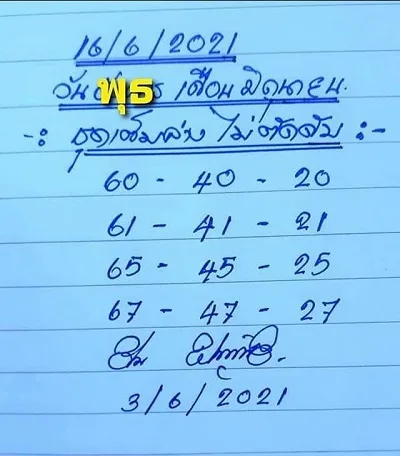 16/6/2021
วัน พุธ เดือน มิถุนายน.
-: ชุดเต็มล่าง ไม่ตัดสิบ :-
60 - 40 - 20
61 - 41 - 21
65 - 45 - 25
67 - 47 - 27
3/6/2021